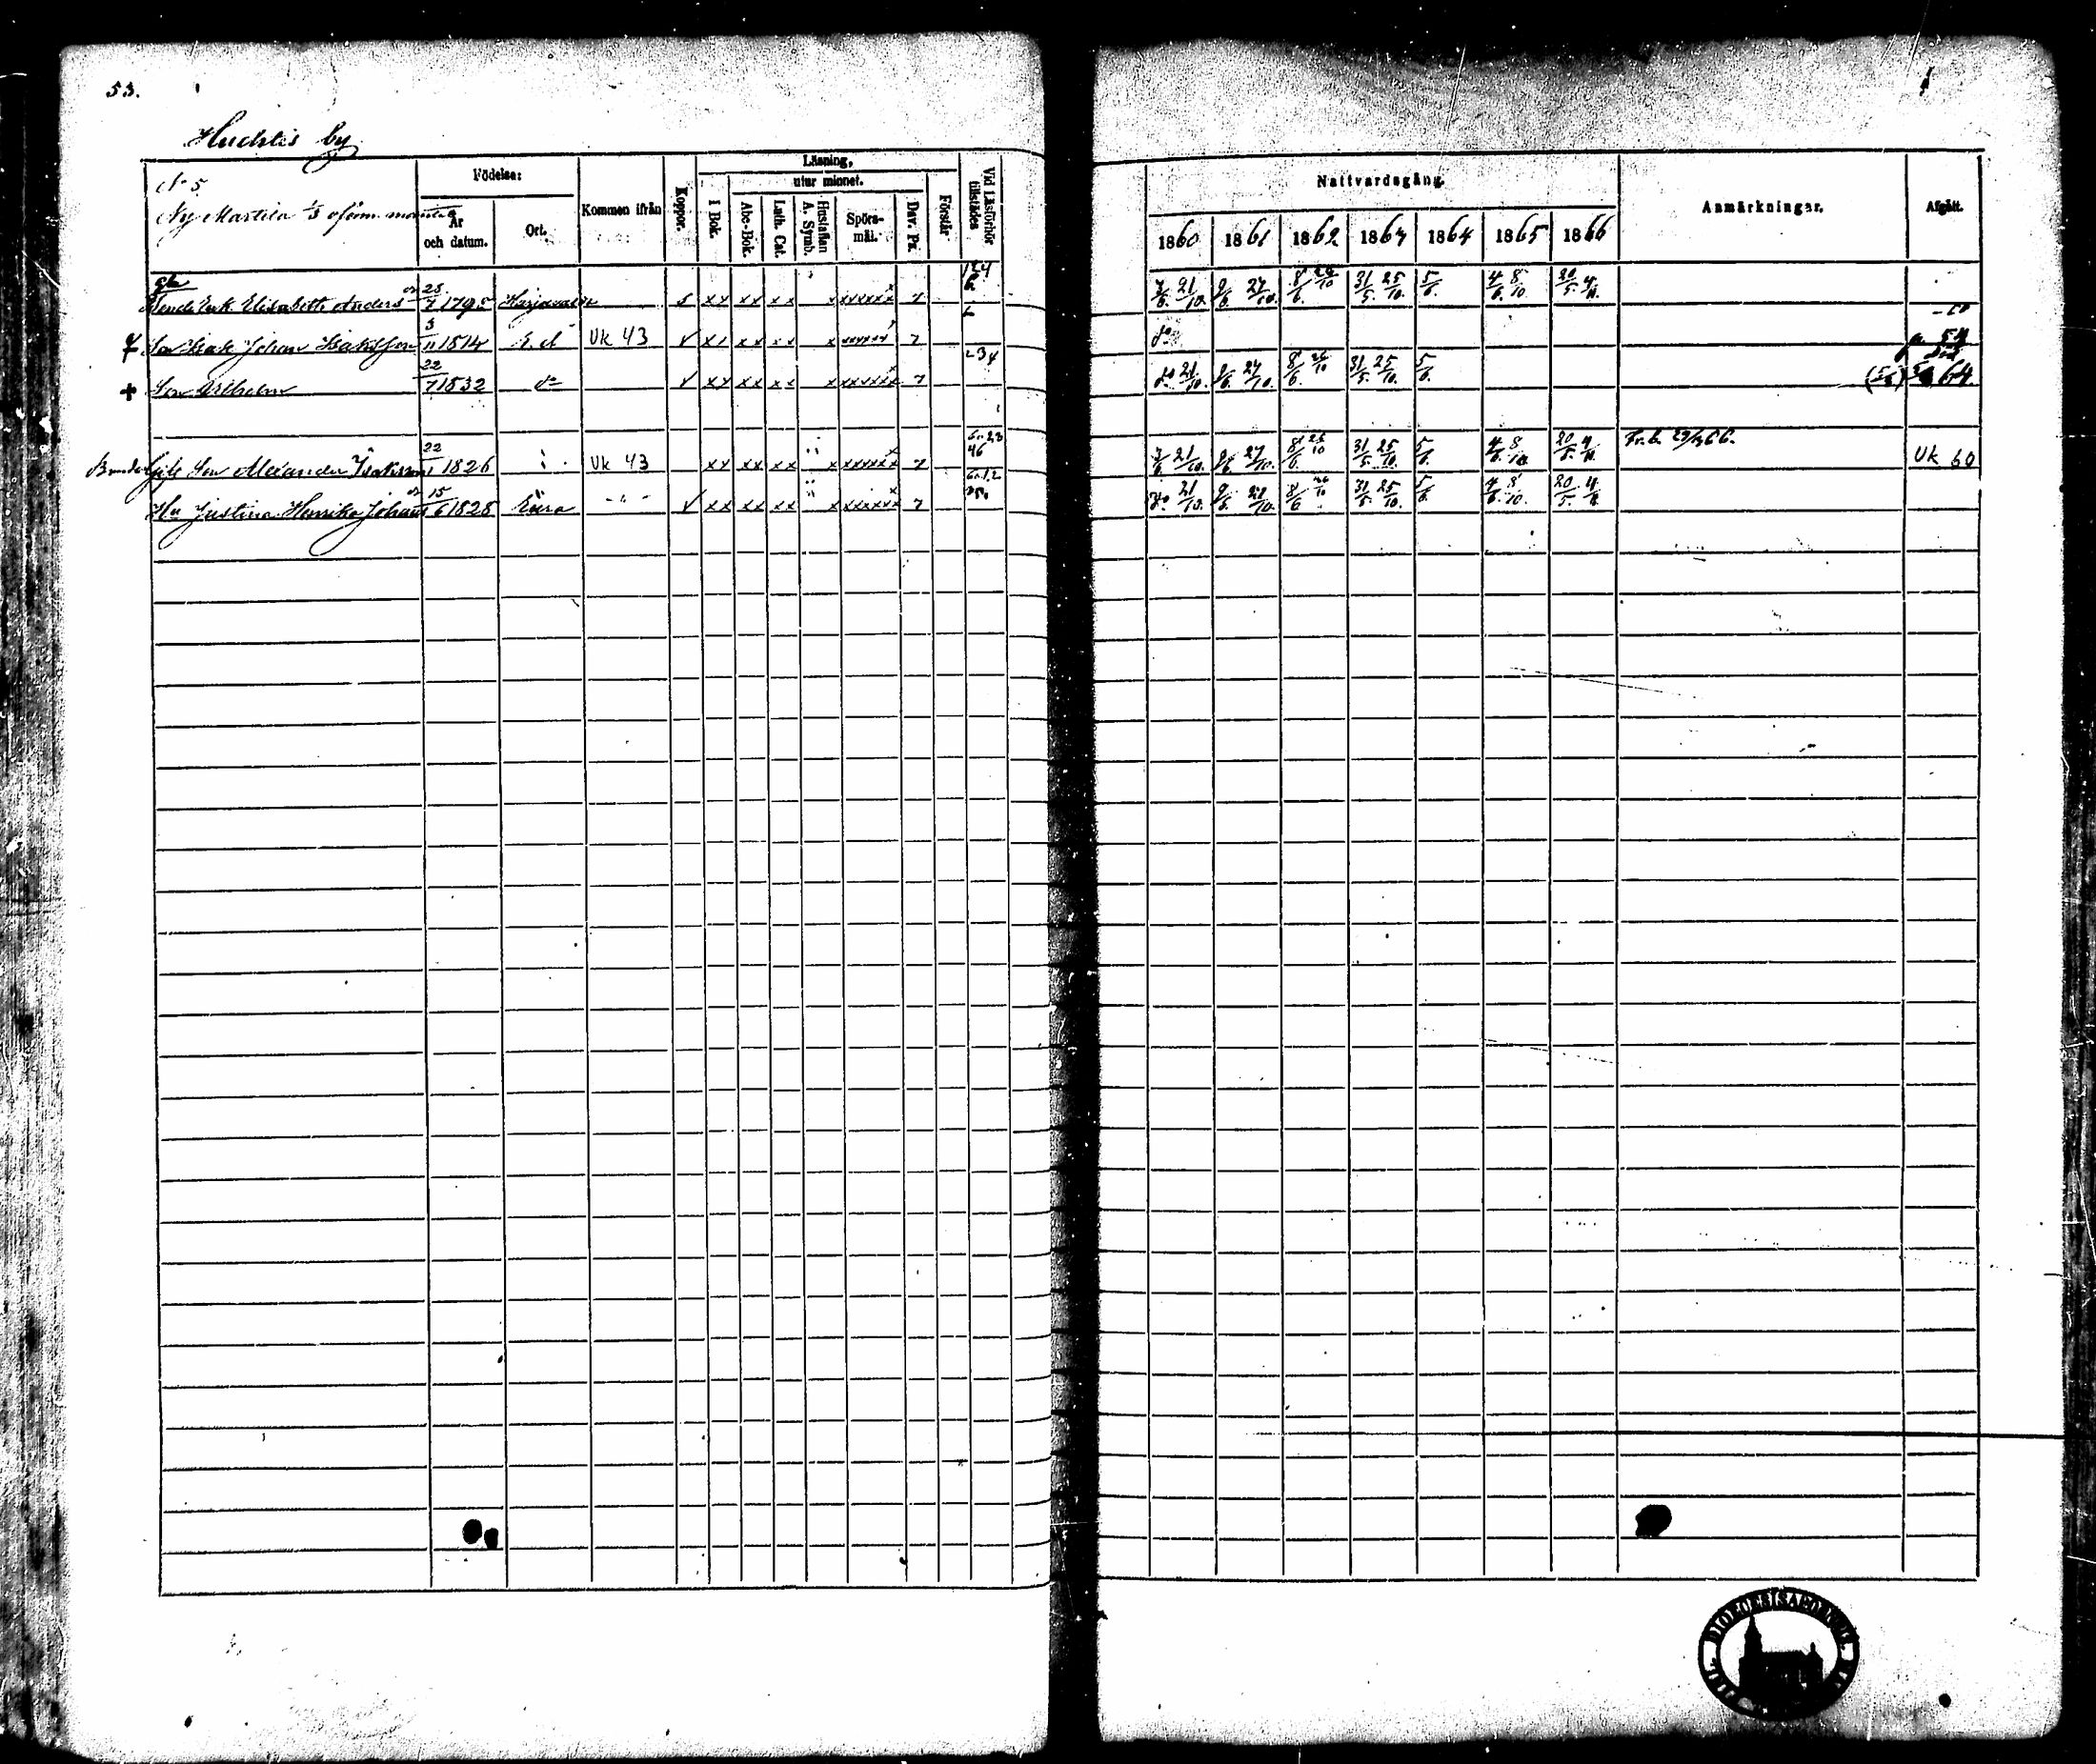 53.
Huchtis by
No 5
Ny Martila 1/3 oförm. mantal
Födelse:
År och datum.
Ort.
Kommen ifrån
Koppor.
Läsning,
I Bok.
utur minnet.
Abc-Bok.
Luth. Cat.
Hustaflan A. Symb.
Spörsmål.
Dav. Ps.
Förstår
Vid Läsförhör tillstädes
Nattvardsgång.
1860 1861 1862 1863 1864 1865 1866
Anmärkningar.
Afgått.
Enk. Elisabetha Andersdr 25/7 1795 Harjavalta s xx xx xx x xxxxxx 7/6 21/10. 9/6 27/10. 8/6. 26/10 31/5. 25/10. 5/6. 4/6. 8/10. 20/5. 4/11.
Son Isak Johan Isaksson 3/11 1814 Uk 43 xx xx x do
Son Wilhelm 22/7 1832 do xx xx xx x xxxxxx do 21/10. 9/6. 27/10. 8/6. 26/10 31/5. 25/10. 5/6. 64
Bonden Gifte Son Alexander Isaksson 22/1 1826 Uk 43 xx xx xx x xxxxxx 7/6 21/10. 9/6. 27/10. 8/6. 26/10 31/5. 25/10. 5/6. 4/6. 8/10. 20/5. 4/11. Fr.b. 23/4 66. Uk 60
Hu Justina Henrika Johansdr 15/6 1828 Eura xx xx xx x xxxxxx do 21/10. 9/6. 27/10. 8/6 26/10 31/5. 25/10. 5/6. 4/6. 8/10. 20/5. 4/11.